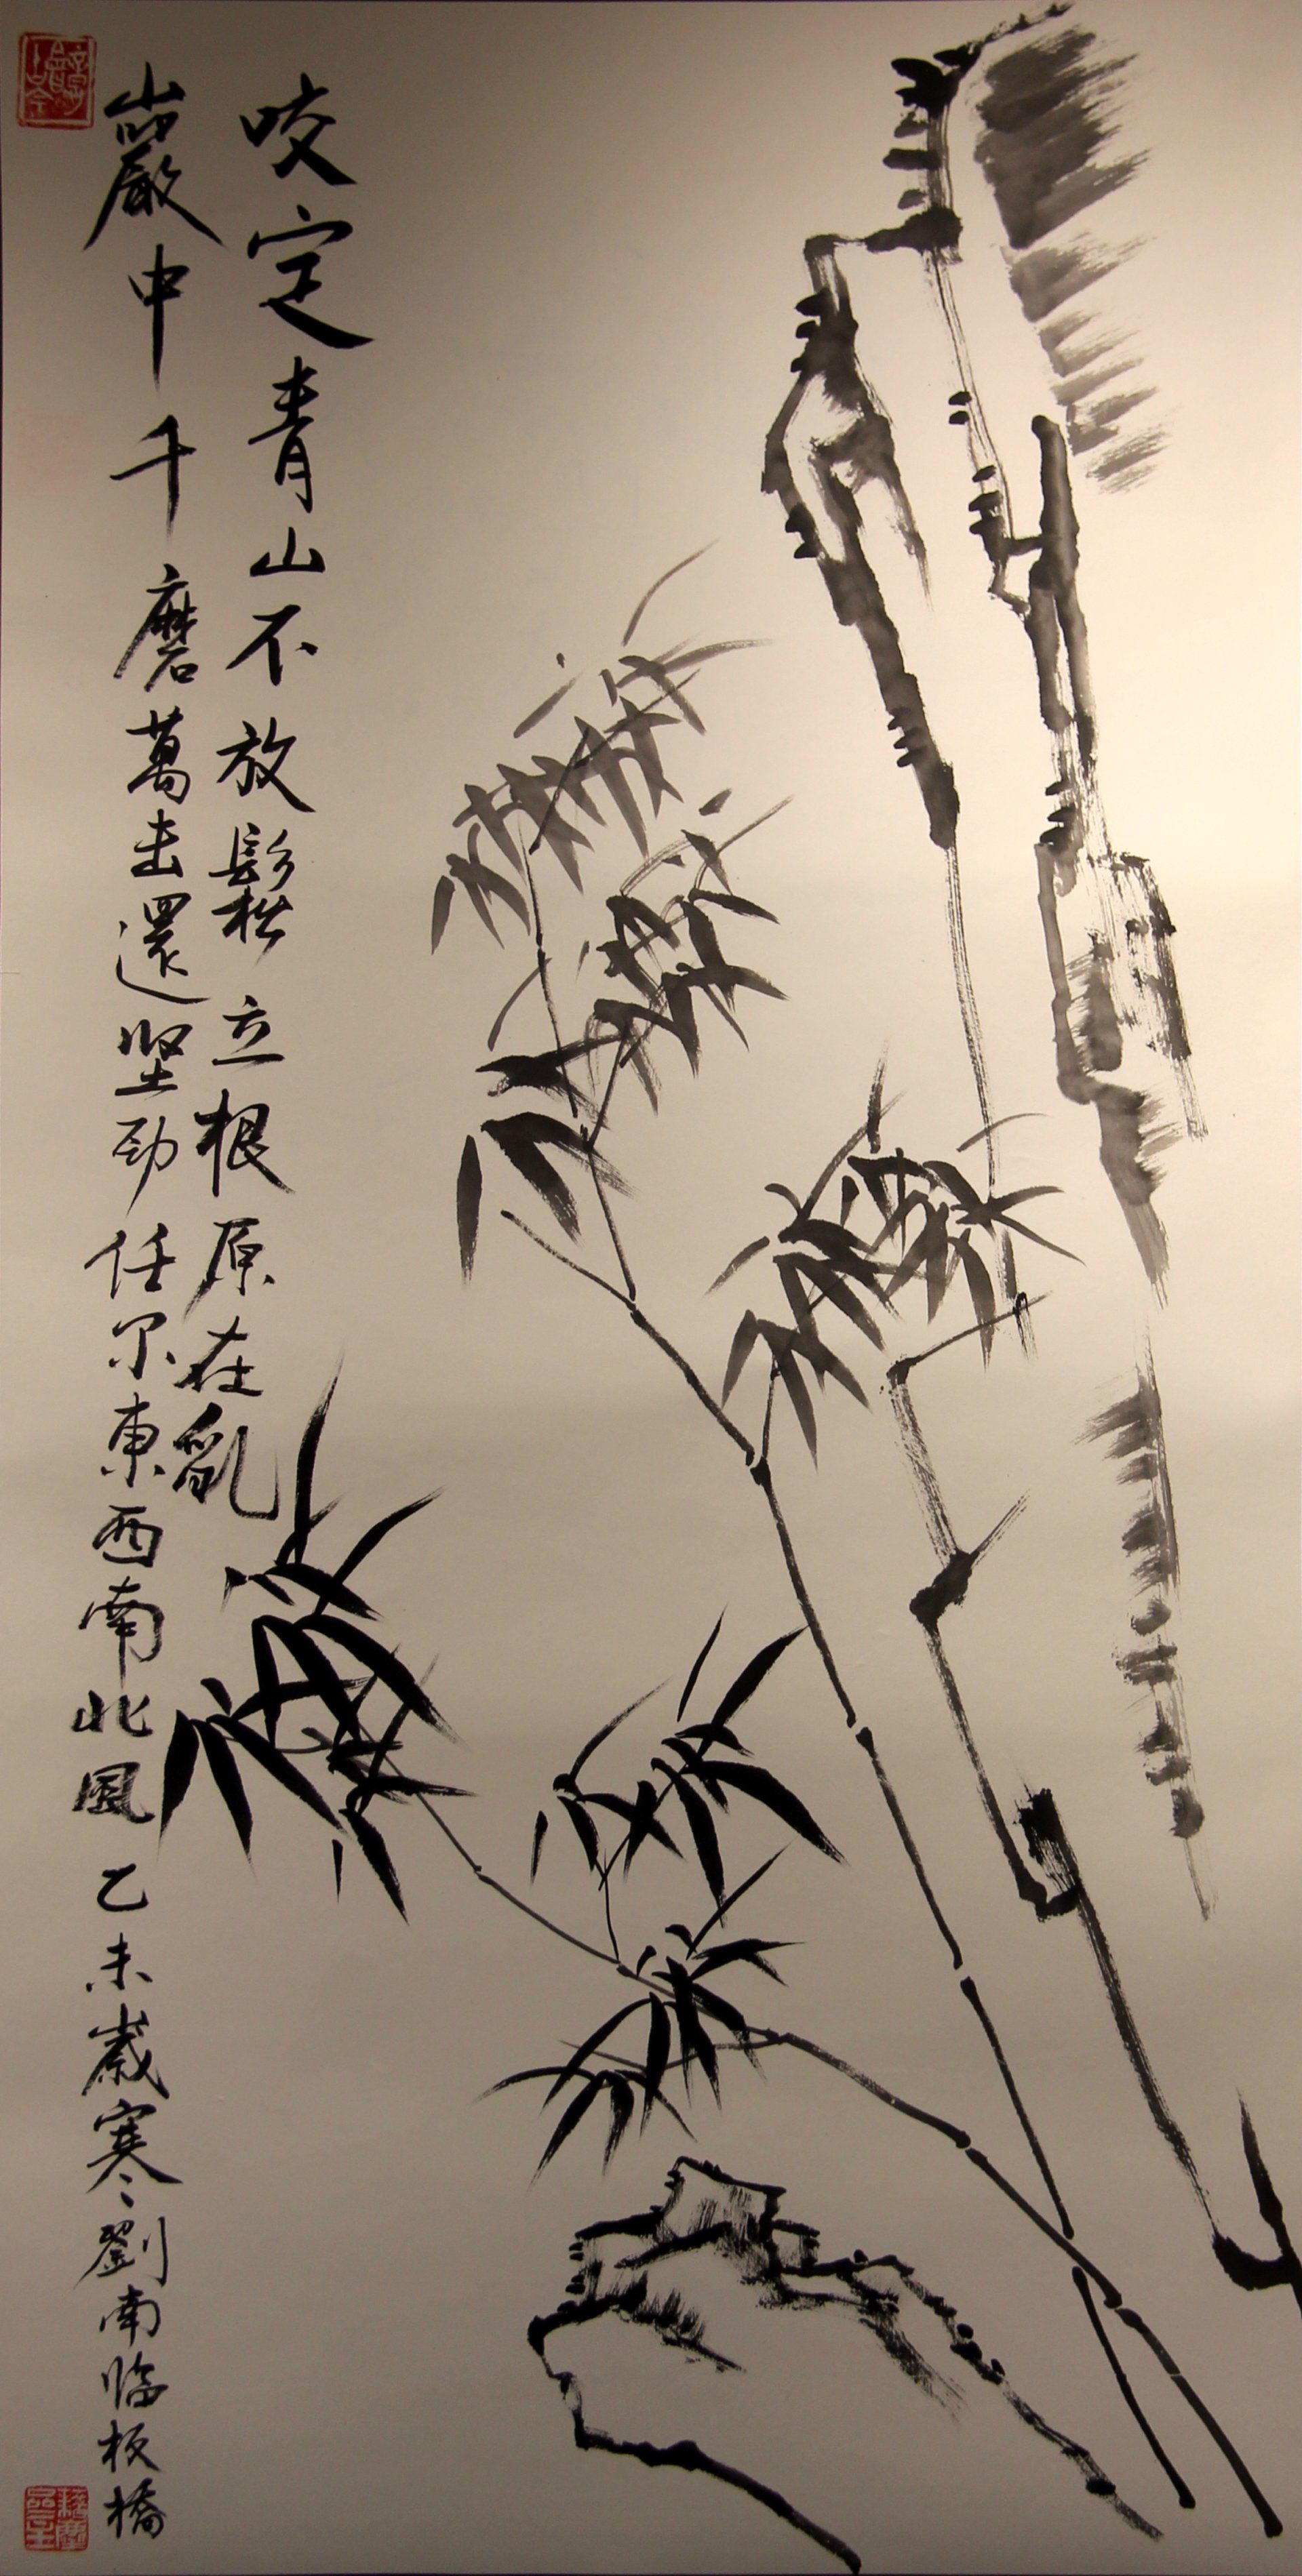 咬定青山不放鬆立根原在亂
巖中千磨萬击還坚劲任尔東西南北風乙未歲寒劉南臨板橋